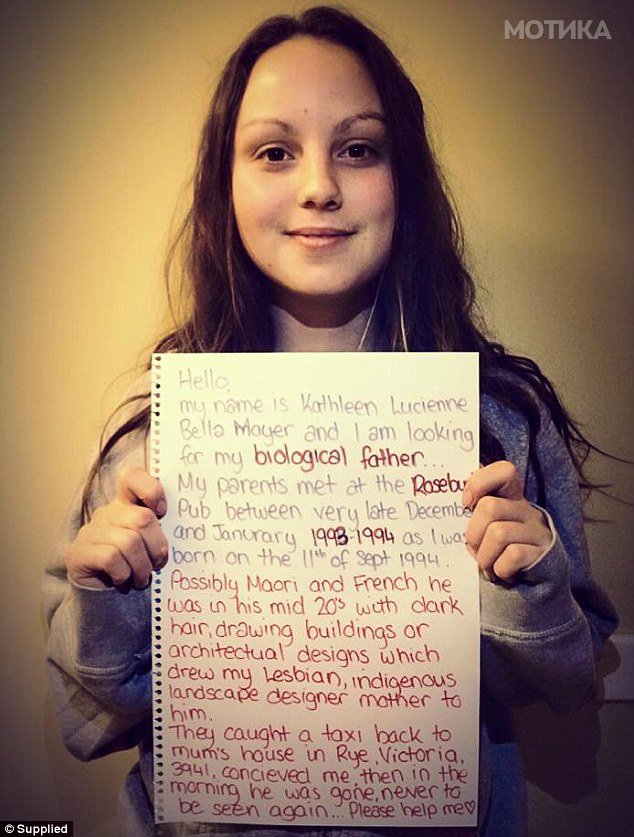 МОТИКА
Hello,
my name is Kathleen Lucienne
Bella Mayer and I am looking
for my biological father...
My parents met at the Rosebu
Pub between very late Decembe
and Janurary 1993-1994 as I wa
born on the 11th of Sept 1994.
Possibly Maori and French he
was in his mid 20's with dark
hair, drawing buildings or
architectual designs which
drew my Lesbian, indigenous
landscape designer mother to
him.
They caught a taxi back to
mum's house in Rye, Victoria,
3941, concieved me then in the
morning he was gone, never to
be seen again... Please help me♡
© Supplied